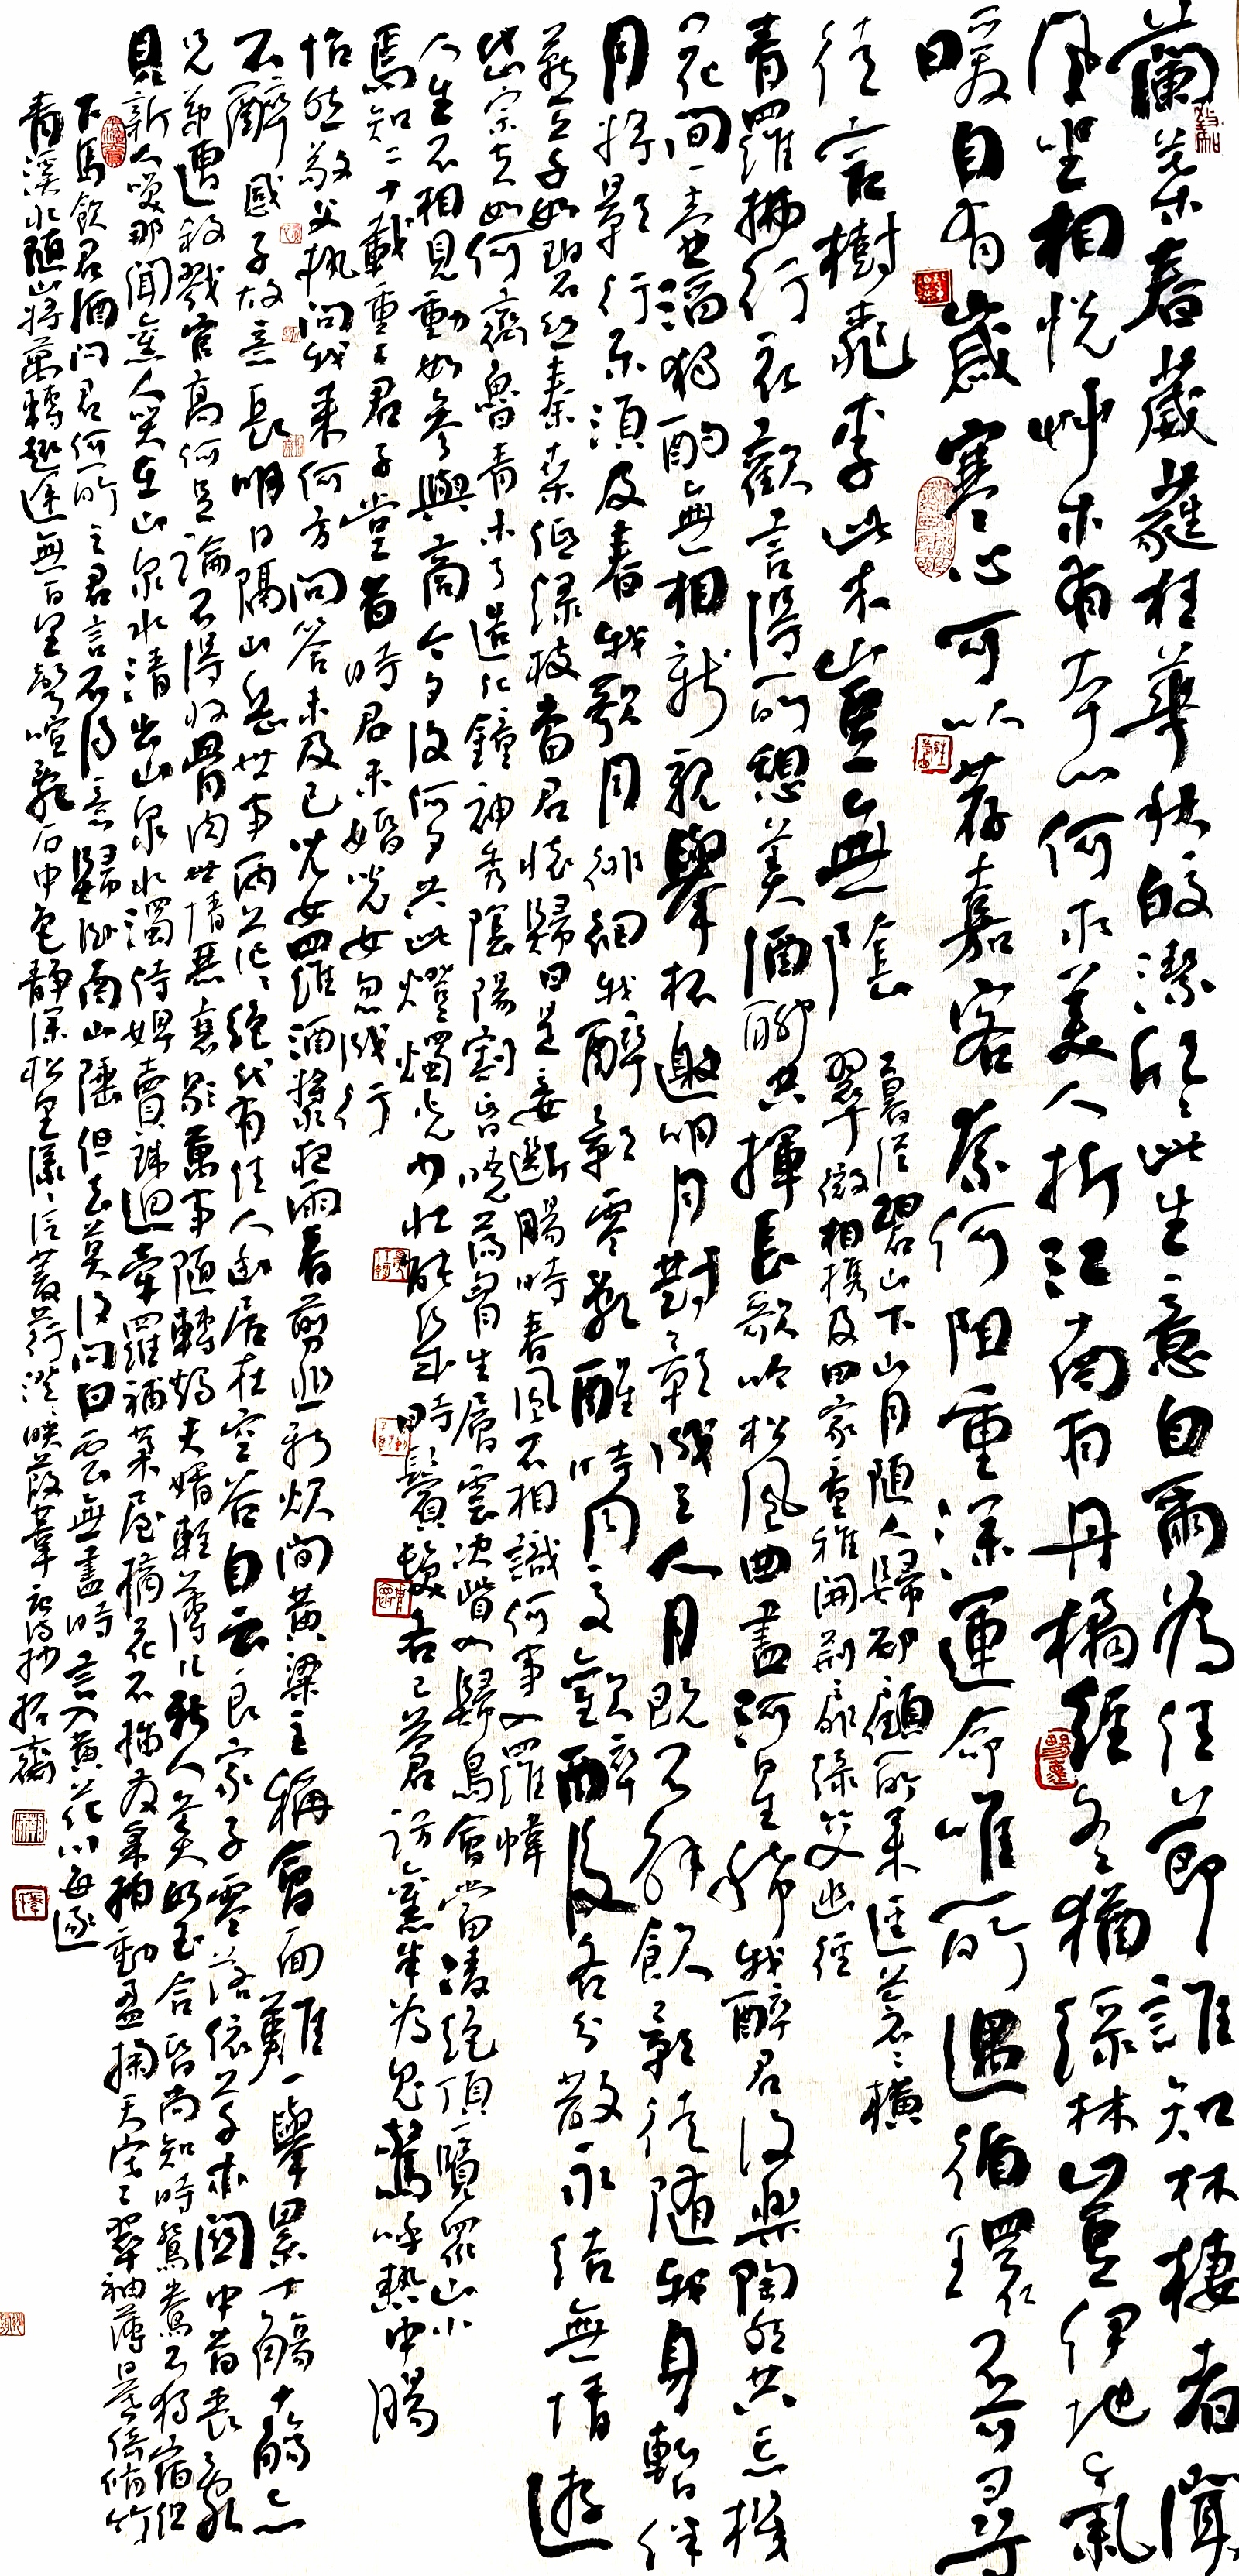 蘭葉春葳蕤桂華秋皎潔欣欣此生意自爾為佳節誰知林棲者聞
風坐相悅草木有本心何求美人折江南有丹橘經冬猶綠林豈伊地氣
暖自有歲寒心可以荐嘉客奈何阻重深運命唯所遇循環不可尋
徒言樹桃李此木豈無陰
暮從碧山下山月隨人歸卻顧所來徑蒼蒼橫
翠微相携及田家童稚開荊扉綠竹入幽徑
青羅拂行衣歡言得所憩美酒聊共揮長歌吟松風曲盡河星稀我醉君復樂陶然共忘機
花間一壺酒獨酌無相新親舉杯邀明月對影成三人月既不解飲影徒隨我身暫伴
月將影行樂須及春我歌月徘徊我醉影零亂醒時同交歡醉後各分散永結無情遊
燕草如碧絲秦桑低綠枝當君懷歸日是妾斷腸時春風不相識何事入羅幃
岱宗夫如何齊魯青未了造化鐘神秀陰陽割昏曉蕩胸生層雲決眥入歸鳥會當凌絕頂一覽眾山小
人生不相見動如參與商今夕復何夕共此燈燭光少壯能幾時鬢髮各已蒼訪舊半為鬼驚呼熱中腸
焉知二十載重上君子堂昔時君未婚兒女忽成行
怡然敬父執問我來何方問答未及已兒女羅酒漿夜雨春剪韭新炊間黃粱主稱會面難一舉累十觴十觴亦
不醉感子故意長明日隔山岳世事兩茫茫絕代有佳人幽居在空谷自云良家子零落依草木關中昔喪亂
兄弟遭殺戮官高何足論不得收骨肉世情惡衰歇萬事隨轉燭夫婿輕薄兒新人美如玉合昏尚知時鴛鴦不獨宿但
見新人笑那聞舊人哭在山泉水清出山泉水濁侍婢賣珠迴牽羅補茅屋摘花不插髮采柏動盈掬天寒翠袖薄日暮倚修竹
下馬飲君酒問君何所之君言不得意歸臥南山陲但去莫復問白雲無盡時言入黃花川每逐
青溪水隨山將萬轉趣途無百里聲喧亂石中色靜深松裏漾漾泛菱荇澄澄映葭葦